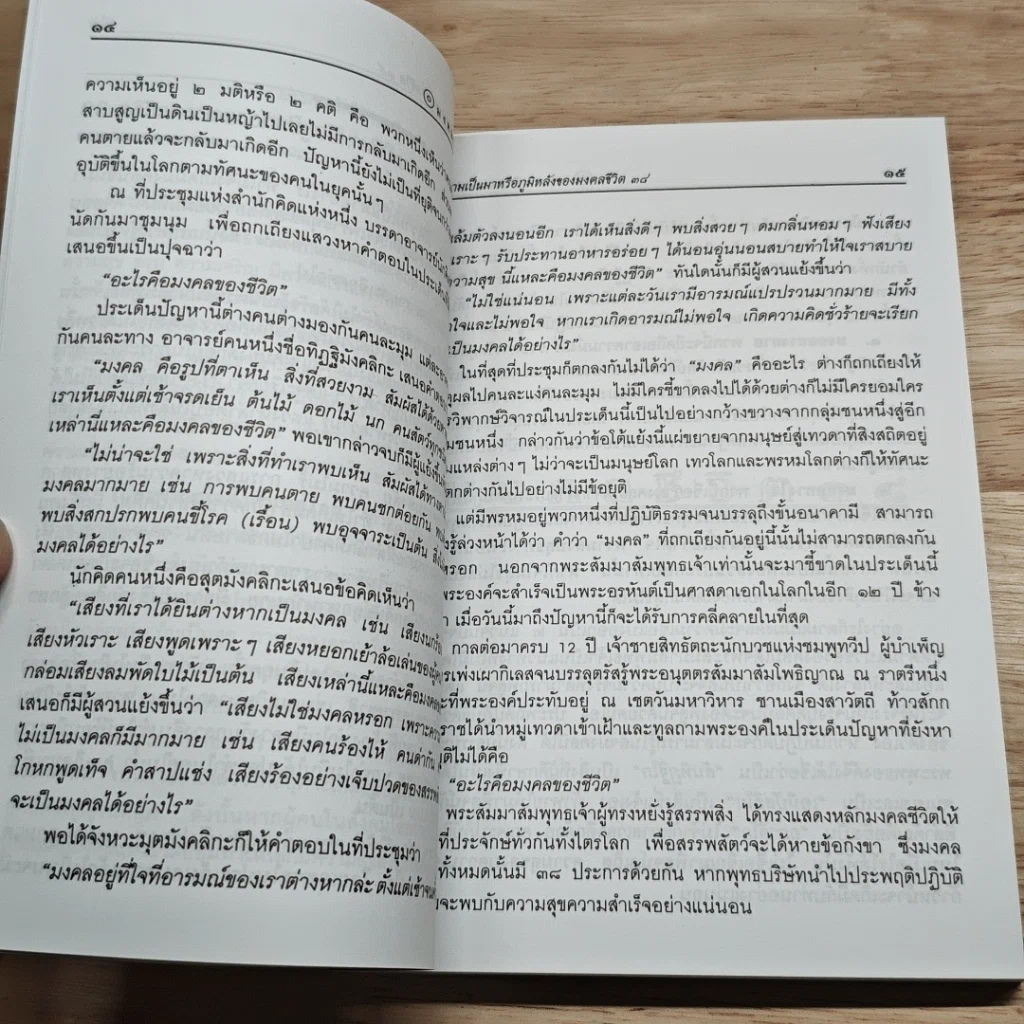 ๑๔
ความเห็นอยู่ ๒ มติหรือ ๒ คติ คือ พวกหนึ่งเห็นว่า
สาบสูญเป็นดินเป็นหญ้าไปเลยไม่มีการกลับมาเกิดอีก
คนตายแล้วจะกลับมาเกิดอีก ปัญหานี้ยังไม่เป็นที่ยุติจน
อุบัติขึ้นในโลกตามทัศนะของคนในยุคนั้นๆ
ณ ที่ประชุมแห่งสำนักคิดแห่งหนึ่ง บรรดาอาจารย์
นัดกันมาชุมนุม เพื่อถกเถียงแสวงหาคำตอบในประเด็น
เสนอขึ้นเป็นปุจฉาว่า
“อะไรคือมงคลของชีวิต”
ประเด็นปัญหานี้ต่างคนต่างมองกันคนละมุม แต่ละ
กันคนละทาง อาจารย์คนหนึ่งชื่อทิฏฐิมังคลิกะ เสนอ
“มงคล คือรูปที่ตาเห็น สิ่งที่สวยงาม สัมผัสได้ด้วย
เราเห็นตั้งแต่เช้าจรดเย็น ต้นไม้ ดอกไม้ นก คนสัตว์
เหล่านี้แหละคือมงคลของชีวิต” พอเขากล่าวจบก็มีผู้แย้งขึ้น
“ไม่น่าจะใช่ เพราะสิ่งที่ทำเราพบเห็น สัมผัสได้
มงคลมากมาย เช่น การพบคนตาย พบคนชกต่อยกัน
พบสิ่งสกปรกพบคนขี้โรค (เรื้อน) พบอุจจาระเป็นต้น
มงคลได้อย่างไร”
นักคิดคนหนึ่งคือสุตมังคลิกะเสนอข้อคิดเห็นว่า
“เสียงที่เราได้ยินต่างหากเป็นมงคล เช่น เสียงนก
เสียงหัวเราะ เสียงพูดเพราะๆ เสียงหยอกเย้าล้อเล่นของ
กล่อมเสียงลมพัดใบไม้เป็นต้น เสียงเหล่านี้แหละคือมงคล
เสนอก็มีผู้สวนแย้งขึ้นว่า “เสียงไม่ใช่มงคลหรอก เพราะ
ไม่เป็นมงคลก็มีมากมาย เช่น เสียงคนร้องไห้ คนด่ากัน
โกหกพูดเท็จ คำสาปแช่ง เสียงร้องอย่างเจ็บปวดของ
จะเป็นมงคลได้อย่างไร”
พอได้จังหวะมุตมังคลิกะก็ให้คำตอบในที่ประชุมว่า
“มงคลอยู่ที่ใจที่อารมณ์ของเราต่างหากล่ะ ตั้งแต่เช้า
วามเป็นมาหรือภูมิหลังของมงคลชีวิต ๓๘ ๑๕
ล้มตัวลงนอนอีก เราได้เห็นสิ่งดีๆ พบสิ่งสวยๆ ดมกลิ่นหอมๆ ฟังเสียง
เราะๆ รับประทานอาหารอร่อยๆ ได้นอนอุ่นนอนสบายทำให้ใจเราสบาย
ความสุข นี้แหละคือมงคลของชีวิต” ทันใดนั้นก็มีผู้สวนแย้งขึ้นว่า
“ไม่ใช่แน่นอน เพราะแต่ละวันเรามีอารมณ์แปรปรวนมากมาย มีทั้ง
อใจและไม่พอใจ หากเราเกิดอารมณ์ไม่พอใจ เกิดความคิดชั่วร้ายจะเรียก
เป็นมงคลได้อย่างไร”
ในที่สุดที่ประชุมก็ตกลงกันไม่ได้ว่า “มงคล” คืออะไร ต่างก็ถกเถียงให้
ตุผลไปคนละแง่คนละมุม ไม่มีใครชี้ขาดลงไปได้ด้วยต่างก็ไม่มีใครยอมใคร
รวิพากษ์วิจารณ์ในประเด็นนี้เป็นไปอย่างกว้างขวางจากกลุ่มชนหนึ่งสู่อีก
มชนหนึ่ง กล่าวกันว่าข้อโต้แย้งนี้แผ่ขยายจากมนุษย์สู่เทวดาที่สิงสถิตอยู่
มแหล่งต่างๆ ไม่ว่าจะเป็นมนุษย์โลก เทวโลกและพรหมโลกต่างก็ให้ทัศนะ
ตกต่างกันไปอย่างไม่มีข้อยุติ
แต่มีพรหมอยู่พวกหนึ่งที่ปฏิบัติธรรมจนบรรลุถึงขั้นอนาคามี สามารถ
รู้ล่วงหน้าได้ว่า คำว่า “มงคล” ที่ถกเถียงกันอยู่นี้นั้นไม่สามารถตกลงกัน
หรอก นอกจากพระสัมมาสัมพุทธเจ้าเท่านั้นจะมาชี้ขาดในประเด็นนี้
พระองค์จะสำเร็จเป็นพระอรหันต์เป็นศาสดาเอกในโลกในอีก ๑๒ ปี ข้าง
า เมื่อวันนี้มาถึงปัญหานี้ก็จะได้รับการคลี่คลายในที่สุด
กาลต่อมาครบ 12 ปี เจ้าชายสิทธัตถะนักบวชแห่งชมพูทวีป ผู้บำเพ็ญ
รเพ่งเผากิเลสจนบรรลุตรัสรู้พระอนุตตรสัมมาสัมโพธิญาณ ณ ราตรีหนึ่ง
ะที่พระองค์ประทับอยู่ ณ เชตวันมหาวิหาร ชานเมืองสาวัตถี ท้าวสักก
ราชได้นำหมู่เทวดาเข้าเฝ้าและทูลถามพระองค์ในประเด็นปัญหาที่ยังหา
ุติไม่ได้คือ
“อะไรคือมงคลของชีวิต”
พระสัมมาสัมพุทธเจ้าผู้ทรงหยั่งรู้สรรพสิ่ง ได้ทรงแสดงหลักมงคลชีวิตให้
ที่ประจักษ์ทั่วกันทั้งไตรโลก เพื่อสรรพสัตว์จะได้หายข้อกังขา ซึ่งมงคล
ทั้งหมดนั้นมี ๓๘ ประการด้วยกัน หากพุทธบริษัทนำไปประพฤติปฏิบัติ
จะพบกับความสุขความสำเร็จอย่างแน่นอน